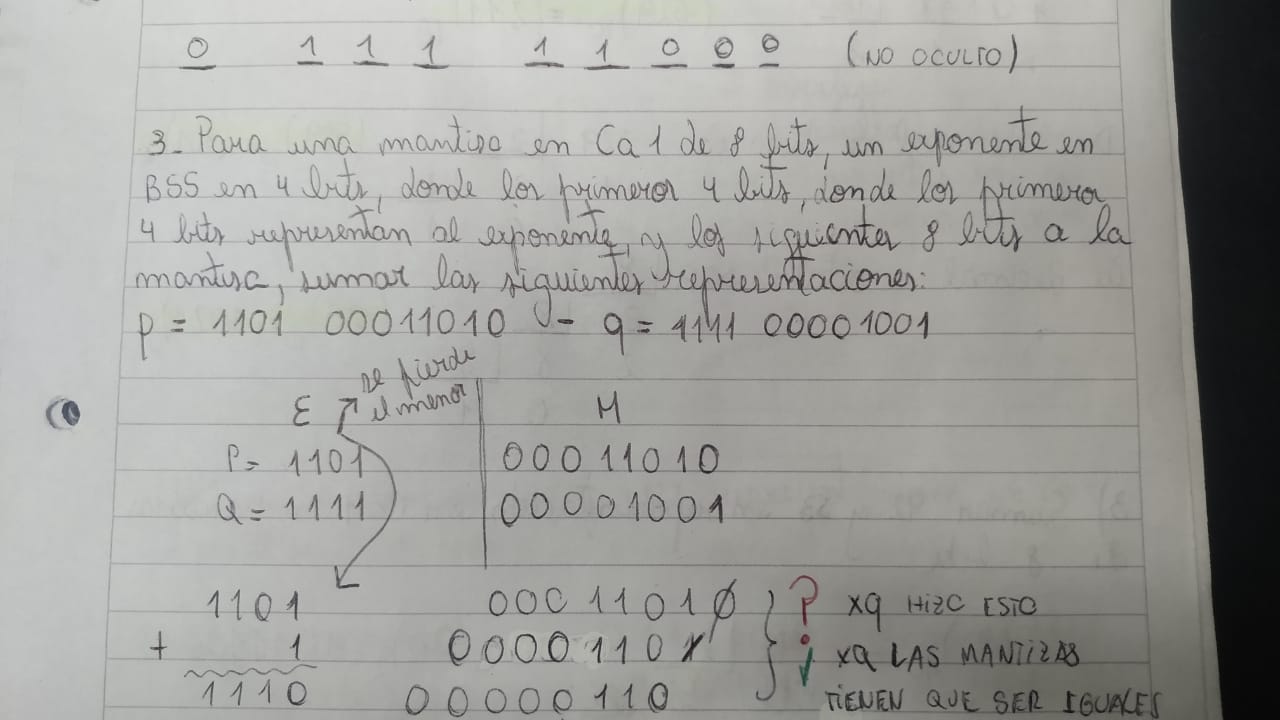 0 1 1 1 1 1 0 0 0 (NO OCULTO)
3- Para una mantisa en Ca1 de 8 bits, un exponente en
BSS en 4 bits, donde los primeros 4 bits, donde los primeros
4 bits representan al exponente, y los siguientes 8 bits a la
mantisa, sumar las siguientes representaciones:
p = 1101 00011010 - q = 1111 00001001
se pierde
E el menor M
P= 1101 00011010
Q = 1111 00001001
1101 00011010 } ? xq HIZO ESTO
+ 1 00001101 xq LAS MANTIZAS
1110 00000110 TIENEN QUE SER IGUALES